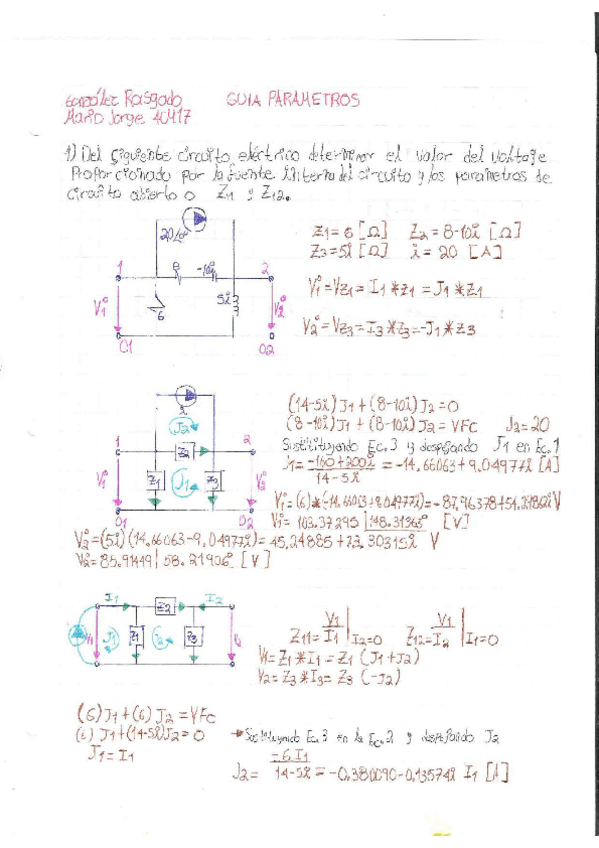 González Rasgado GUIA PARAMETROS
Mario Jorge 4CM17
1) Del siguiente circuito eléctrico determinar el valor del voltaje
Proporcionado por la fuente interna del circuito y los parámetros de
circuito abierto o Z11 y Z12.
20∠0°
Z1=6 [Ω] Z2=8-10i [Ω]
Z3=5i [Ω] i=20 [A]
1 8 -10i 2
V1° 6 5i V2°
V1°=Vz1=I1*z1=J1*Z1
V2°=Vz3=I3*z3=-J1*z3
O1 O2
i
J2
(14-5i)J1+(8-10i)J2=0
(8-10i)J1+(8-10i)J2=VFC J2=20
1 Z2 2
Sustituyendo Ec.3 y despejando J1 en Ec.1
V1° Z1 J1 Z3 V2°
J1=-160+200i/14-5i=-14.66063+9.04977i [A]
V1°=(6)*(-14.66063+9.04977i)=-87.96378+54.29862i V
O1 O2
V1°=103.37295|148.31368° [V]
V2°=(5i)(14.66063-9.04977i)=45.24885+73.30315i V
V2°=85.91449|58.21906° [V]
I1 Z2 I2
V1 J1 Z1 J2 Z3
Z11=V1/I1|I2=0 Z12=V1/I2|I1=0
V1=Z1*I1=Z1(J1+J2)
V2=Z3*I3=Z3(-J2)
(6)J1+(6)J2=VFC
(6)J1+(14-5i)J2=0 → Sustituyendo Ec.3 en la Ec.2 y despejando J2
J1=I1
J2=-6I1/14-5i=-0.380090-0.13574i I1 [A]